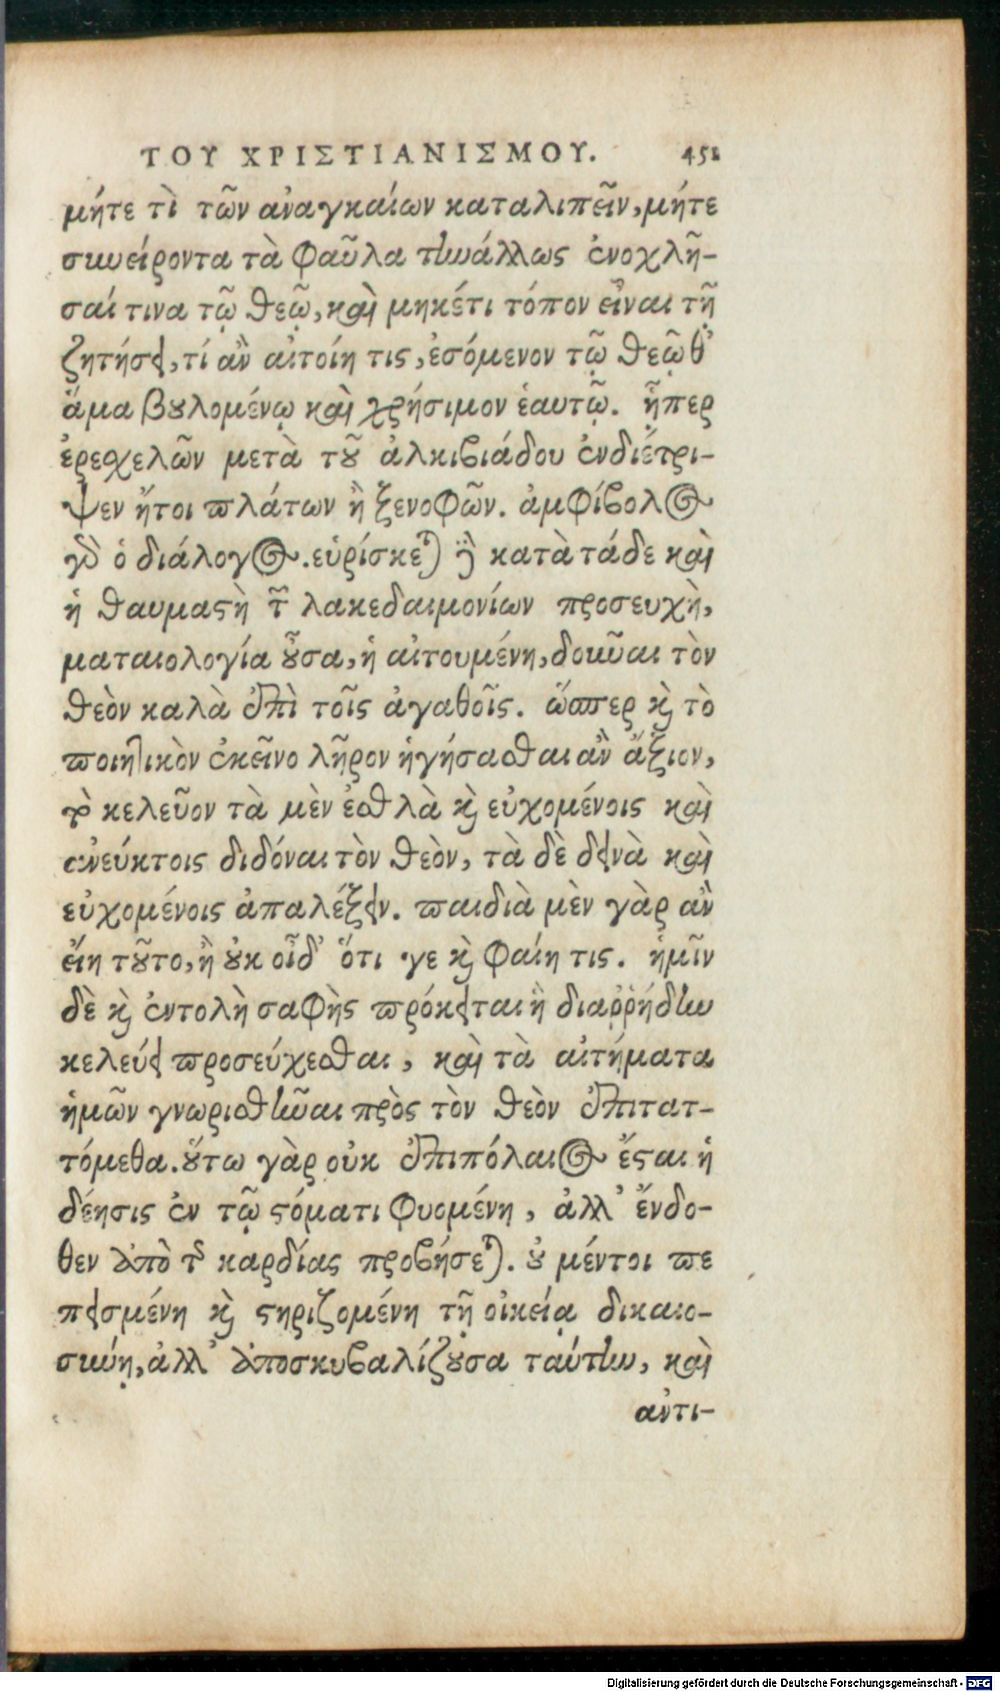 ΤΟΥ ΧΡΙΣΤΙΑΝΙΣΜΟΥ. 451
μήτε τὶ τῶν ἀναγκαίων καταλιπεῖν, μήτε
συνείροντα τὰ φαῦλα τὴνάλλως ἐνοχλῆ-
σαί τινα τῷ θεῷ, καὶ μηκέτι τόπον εἶναι τῇ
ζητήσει, τί ἂν αἰτοίη τις, ἐσόμενον τῷ θεῷ θ’
ἅμα βουλομένῳ καὶ χρήσιμον ἑαυτῷ. ᾗπερ
ἐρεσχελῶν μετὰ τοῦ ἀλκιβιάδου ἐνδιέτρι-
ψεν ἤτοι πλάτων ἢ ξενοφῶν. ἀμφίβολος
γὰρ ὁ διάλογος. εὑρίσκεται ἢ κατὰ τάδε καὶ
ἡ θαυμαστὴ τῶν λακεδαιμονίων προσευχὴ,
ματαιολογία οὖσα, ἡ αἰτουμένη, δοῦναι τὸν
θεὸν καλὰ ἐπὶ τοῖς ἀγαθοῖς. ὥσπερ καὶ τὸ
ποιητικὸν ἐκεῖνο λῆρον ἡγήσασθαι ἂν ἄξιον,
τὸ κελεῦον τὰ μὲν ἐσθλὰ καὶ εὐχομένοις καὶ
ἀνεύκτοις διδόναι τὸν θεὸν, τὰ δὲ δεινὰ καὶ
εὐχομένοις ἀπαλέξειν. παιδιὰ μὲν γὰρ ἂν
εἴη τοῦτο, ἢ οὐκ οἶδ’ ὅτι γε καὶ φαίη τις. ἡμῖν
δὲ καὶ ἐντολὴ σαφὴς πρόκειται ἢ διαῤῥήδην
κελεύει προσεύχεσθαι, καὶ τὰ αἰτήματα
ἡμῶν γνωρισθῆναι πρὸς τὸν θεὸν ἐπιτατ-
τόμεθα. οὕτω γὰρ οὐκ ἐπιπόλαιος ἔσται ἡ
δέησις ἐν τῷ στόματι φυομένη, ἀλλ’ ἔνδο-
θεν ἀπὸ τῆς καρδίας προβήσεται. οὐ μέντοι πε
πεισμένη καὶ στηριζομένη τῇ οἰκείᾳ δικαιο-
σύνῃ, ἀλλ’ ἀποσκυβαλίζουσα ταύτην, καὶ
ἀντι-
Digitalisierung gefördert durch die Deutsche Forschungsgemeinschaft - DFG